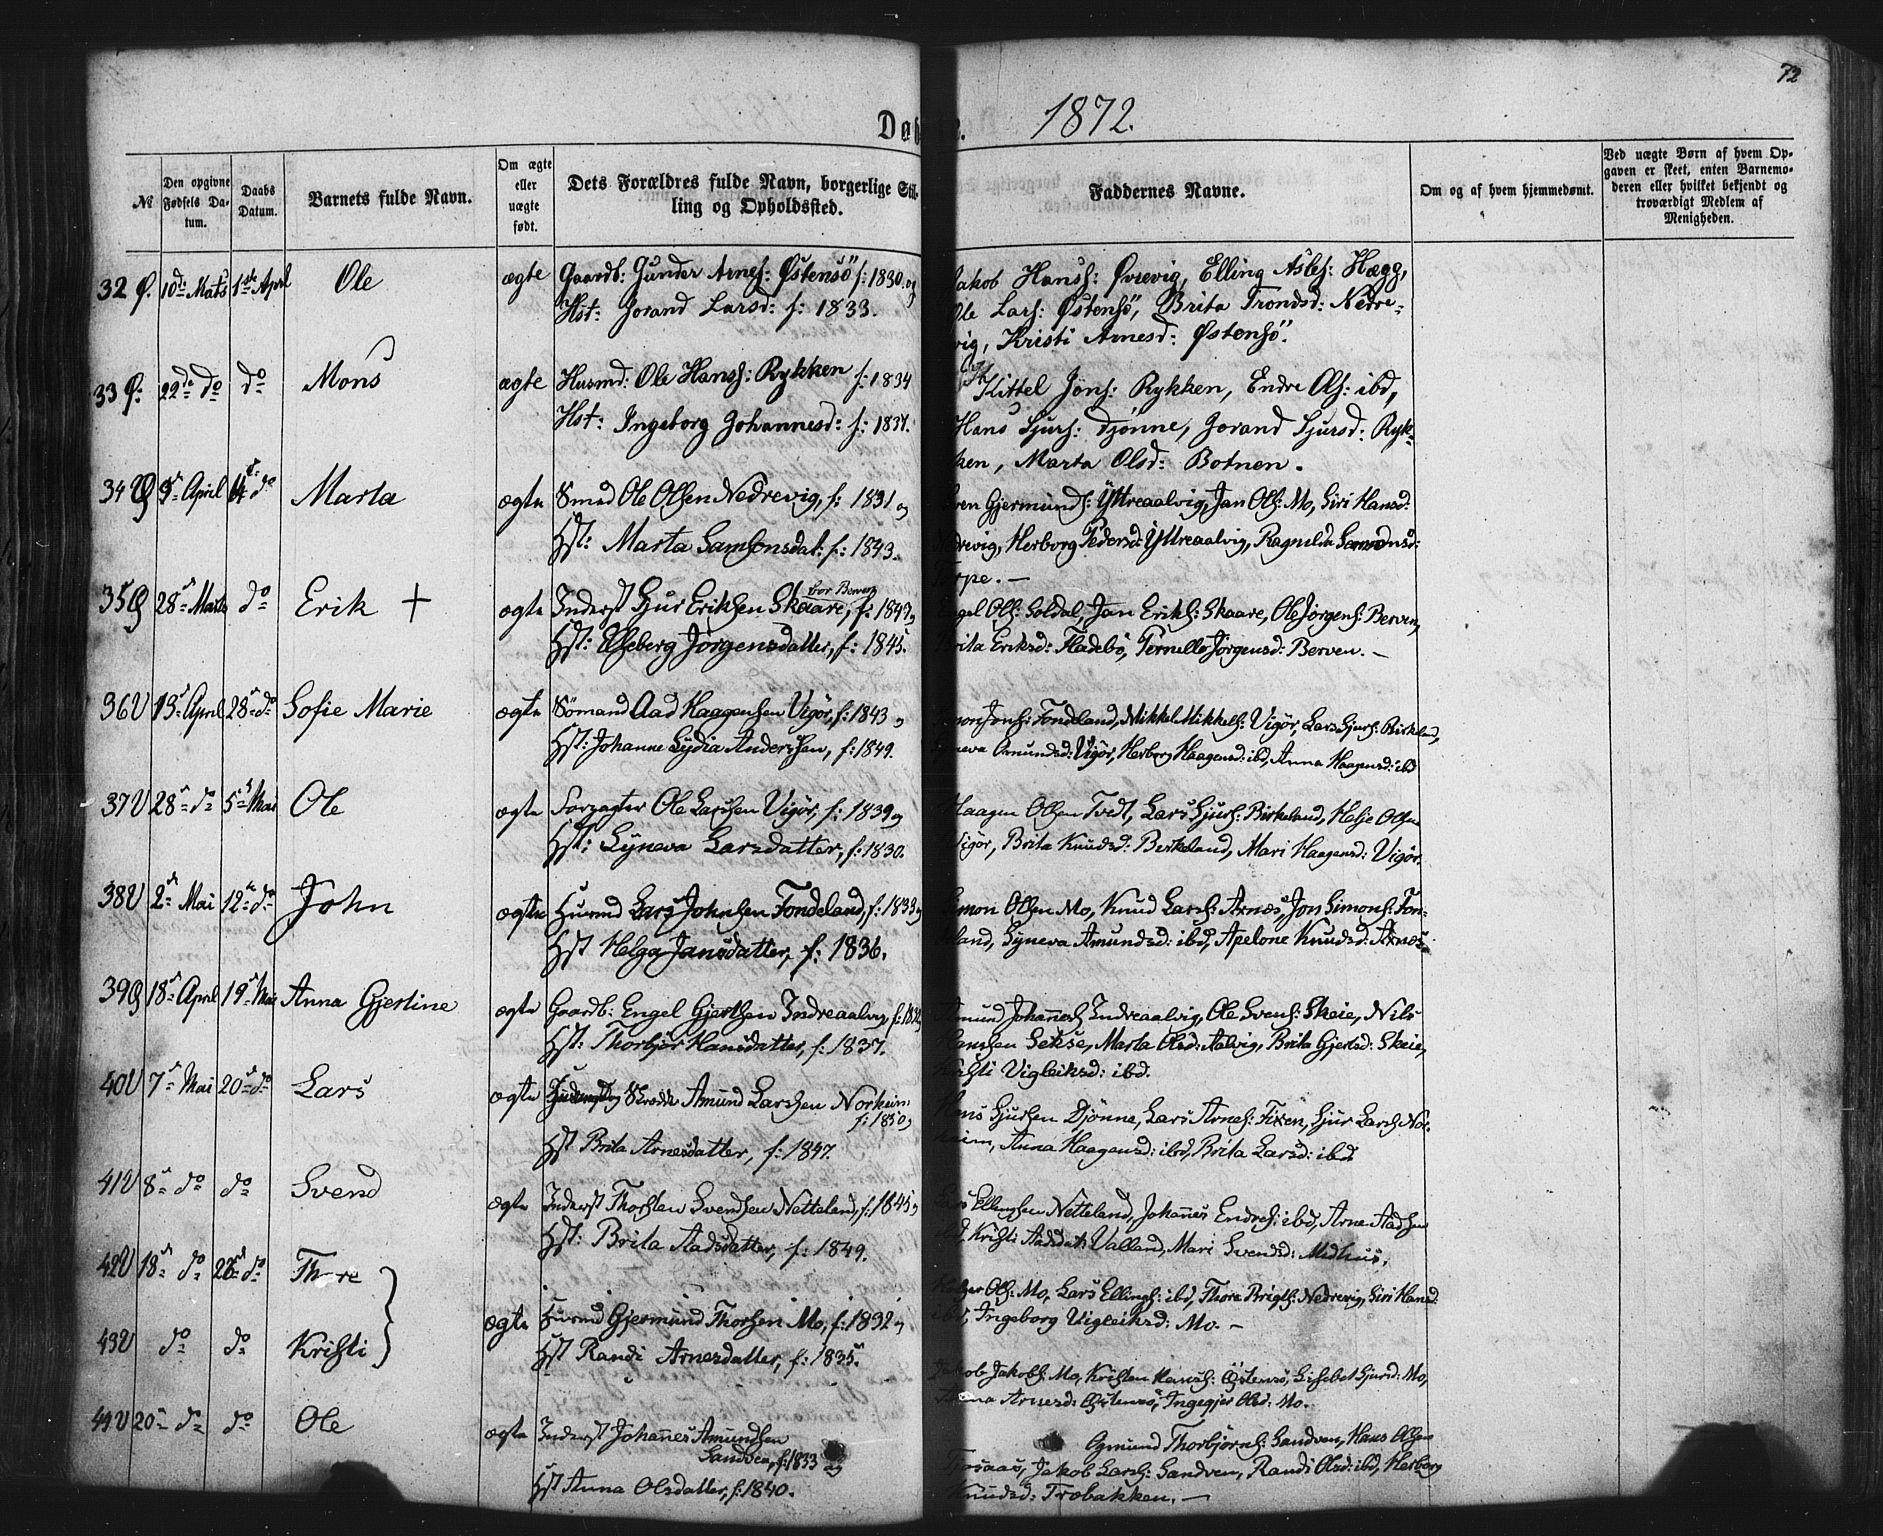 72
Døb
1872.
№
Den opgivne Fødsels Datum.
Daabs Datum.
Barnets fulde Navn.
Om ægte eller uægte født.
Dets Forældres fulde Navn, borgerlige Stilling og Opholdssted.
Faddernes Navne.
Om og af hvem hjemmedøbt.
Ved uægte Børn af hvem Opgaven er skeet, enten Barnemoderen eller hvilket bekjendt og troværdigt Medlem af Menigheden.
32 Ø. 10de Mats 1ste April Ole ægte Gaardb: Gunder Arnes: Østensö f: 1830. og
Hst: Jorand Larsd: f: 1833.
Jakob Hanss: Øvrevig, Elling Asles: Hægg,
Ole Lars: Østensö, Brita Trondsd: Nedre-
vig, Kristi Arnesd: Østensö.
33 Ø. 22de do do Mons ægte Husmd: Ole Hanss: Rykken f: 1834
Hst: Ingeborg Johannesd: f: 1837.
Kittel Jöns: Rykken, Endre Ols: ibd,
Hans Sjurs: Djönne, Jorand Sjursd: Ryk-
ken, Marta Olsd: Botnen.
34 April 14 do Marta ægte Smed Ole Olsen Nedrevig, f: 1831 og
Hst: Marta Samsonsdat: f: 1843.
Gjermunds: Yttreaalvig, Jan Ols: Mo, Siri Hansd:
Nedrevig, Herborg Pedersd: Yttreaalvig, Ragnilda Samsonsd:
Torpe. —
35 28 Mats do Erik + ægte Inderst Sjur Eriksen Skaare, bor Berven f: 1843 og
Hst: Elseberg Jörgensdatter, f: 1845.
Engel Ols: Soldal, Jan Eriks: Skaare, Ole Jörgens: Berven,
Brita Eriksd: Fladebö, Pernelle Jörgensd: Berven. —
36 V 13 April 28 do Sofie Marie ægte Sömand Aad Haagensen Vigör, f: 1843 og
Hst: Johanne Lydia Andersen, f: 1849.
Jons: Fondeland, Mikkel Mikkels: Vigör, Lars Sjurs: Birkeland,
Synneva Amundsd: Vigör, Herborg Haagensd: ibd, Anna Haagensd: ibd
37 V 28 do 5 Mai Ole ægte Forpagter Ole Larssen Vigör, f: 1839 og
Hst: Syneva Larsdatter, f: 1830.
Haagen Olsen Tvedt, Lars Sjurs: Birkeland, Helje Olsen
Vigör, Brita Knudsd: Berkeland, Mari Haagensd: Vigör.
38 V 2 Mai 12 do John ægte Husmd Lars Johnsen Fondeland, f: 1833 og
Hst Helga Jansdatter, f: 1836.
Simon Olsen Mo, Knud Lars: Arnes, Jon Simons: Fon-
deland, Syneva Amundsd: ibd, Apelone Knudsd: Arnes.
39 18 April 19 Mai Anna Gjertine ægte Gaardb: Engel Gjertsen Indreaalvig, f: 1832
Hst: Thorbjör Hansdatter, f: 1837.
Amund Johannes: Indreaalvig, Ole Svens: Skeie, Nils
Hanssen Sekse, Marta Olsd: Aalvig, Brita Gjertsd: Skeie,
Kristi Vigleiksd: ibd.
40 V 7 Mai 20 do Lars ægte Skrædder Amund Larssen Norheim
f: 1850 og
Hst Brita Arnesdatter, f: 1847.
Hans Sjursen Djönne, Lars Arnes: Fixen, Sjur Lars: Nor-
heim, Anna Haagensd: ibd, Brita Larsd: ibd
41 V 8 do do Svend ægte Inderst Thorsten Svendsen Netteland, f: 1845 og
Hst: Brita Aadsdatter, f: 1849.
Lars Ellingsen Netteland, Johannes Endres: ibd, Arne Aadsen
ibd Kristi Aadsdat: Valland, Mari Svendsd: Medhus.
42 V 18 do 26 do Thore
ægte Husmd Gjermund Thorsen Mo, f: 1832 og
Hst Randi Arnesdatter, f: 1835.
Holger Ols: Mo, Lars Ellings: ibd, Thore Brigts: Nedrevig, Siri Hansd:
ibd, Ingeborg Vigleiksd: Mo. —
43 V do do Kristi
Jakob Jakobs: Mo, Kristen Hans: Östensö, Lisebet Sjursd: Mo,
Anna Arnesd: Östensö, Ingegjer Olsd: Mo.
44 V 20 do do Ole ægte Inderst Johannes Amundsen
Sandven, f: 1833 og
Hst Anna Olsdatter, f: 1840.
Ogmund Thorbjörns: Sandven, Hans Olsen
Tjosaas, Jakob Lars: Sandven, Randi Olsd: ibd, Herborg
Knudsd: Træbakken. —